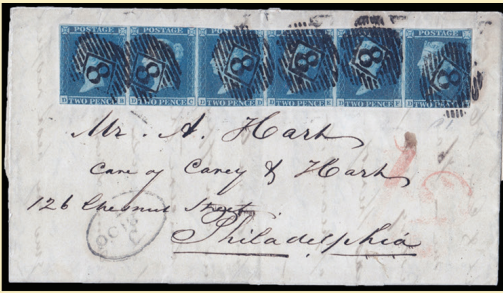 POSTAGE POSTAGE POSTAGE POSTAGE POSTAGE POSTAGE
8 8 8 8 8 8
TWO PENCE TWO PENCE TWO PENCE TWO PENCE TWO PENCE TWO PENCE
Mr. A. Hart
Care of Carey & Hart
126 Chesnut Street
Philadelphia